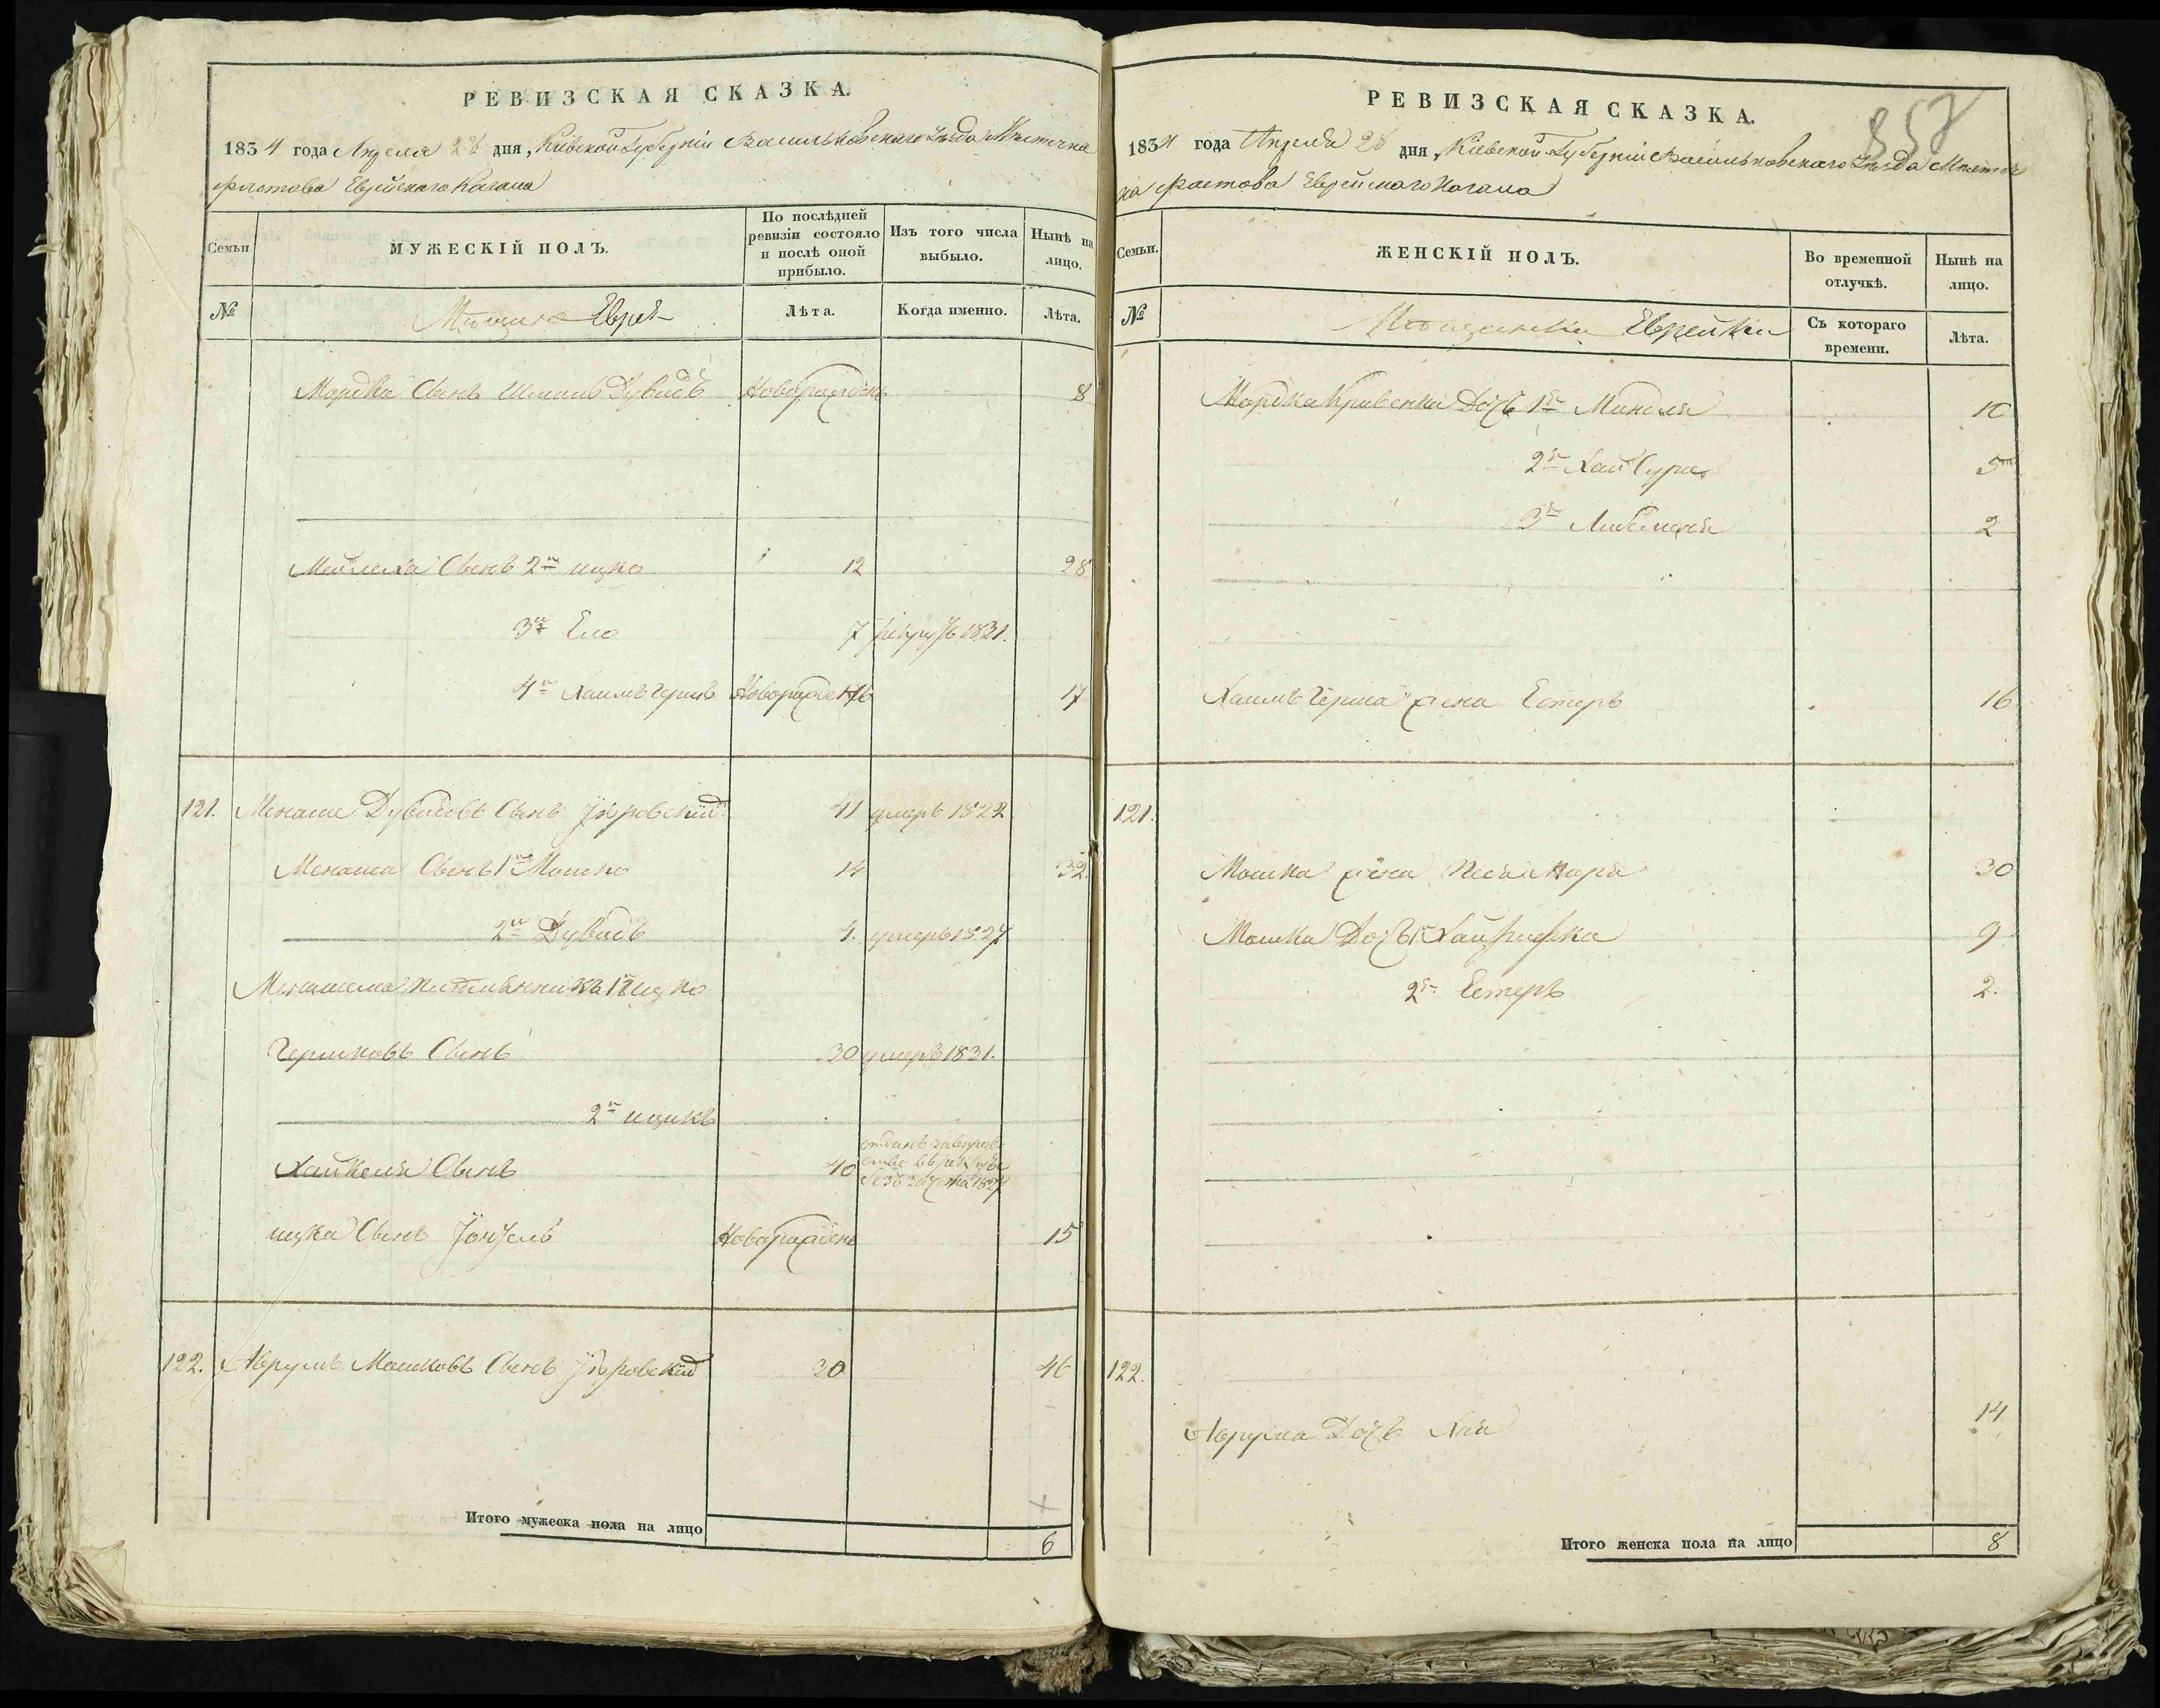 РЕВИЗСКАЯ СКАЗКА.
1834 года Апреля 28 дня, Кіевской Губерніи Васильковскаго Уезда Мѣстечка
Фастова Еврейскаго Кагала
Семьи.
МУЖЕСКІЙ ПОЛЪ.
По послѣдней ревизіи состояло и послѣ оной прибыло.
Изъ того числа выбыло.
Нынѣ на лицо.
№
Мещане Евреи
Лѣта.
Когда именно.
Лѣта.
Мордка Сынъ Шмуль Дувидъ Новорожденъ 8
Мейлеха Сынъ 2й ицко 12 28
3й Ело 7 рекрутъ 1831.
4й Хаимъ Гершъ Новорожденъ 17
121. Менаше Дувидовъ Сынъ 41 умеръ 1822
Менаша Сынъ 1й Мошко 14 32.
2й Дувидъ 4. умеръ 1827
племянникъ 1й ицко
Гершковъ Сынъ 30 умеръ 1831.
2й ицикъ
Хайкеля Сынъ 40 отданъ 1827
ицка Сынъ Новорожденъ 15
122. Аврумъ Мошковъ Сынъ 30 46
Итого мужеска пола на лицо 6
РЕВИЗСКАЯ СКАЗКА.
857
1834 года Апреля 28 дня, Кіевской Губерніи Васильковскаго Уезда Мѣстеч
ка Фастова Еврейскаго Кагала
Семьи.
ЖЕНСКІЙ ПОЛЪ.
Во временной отлучкѣ.
Нынѣ на лицо.
№
Мещанки Еврейки
Съ котораго времени.
Лѣта.
Мордка Кривенка Дочь 1я Миндля 10
2я Хая Сура 5
3я 2
Хаимъ Герша жена Естеръ 16
121.
Мошка жена 30
Мошка Дочь 1я 9
2я Естеръ 2.
122.
Аврума Дочь Хая 14
Итого женска пола на лицо 8